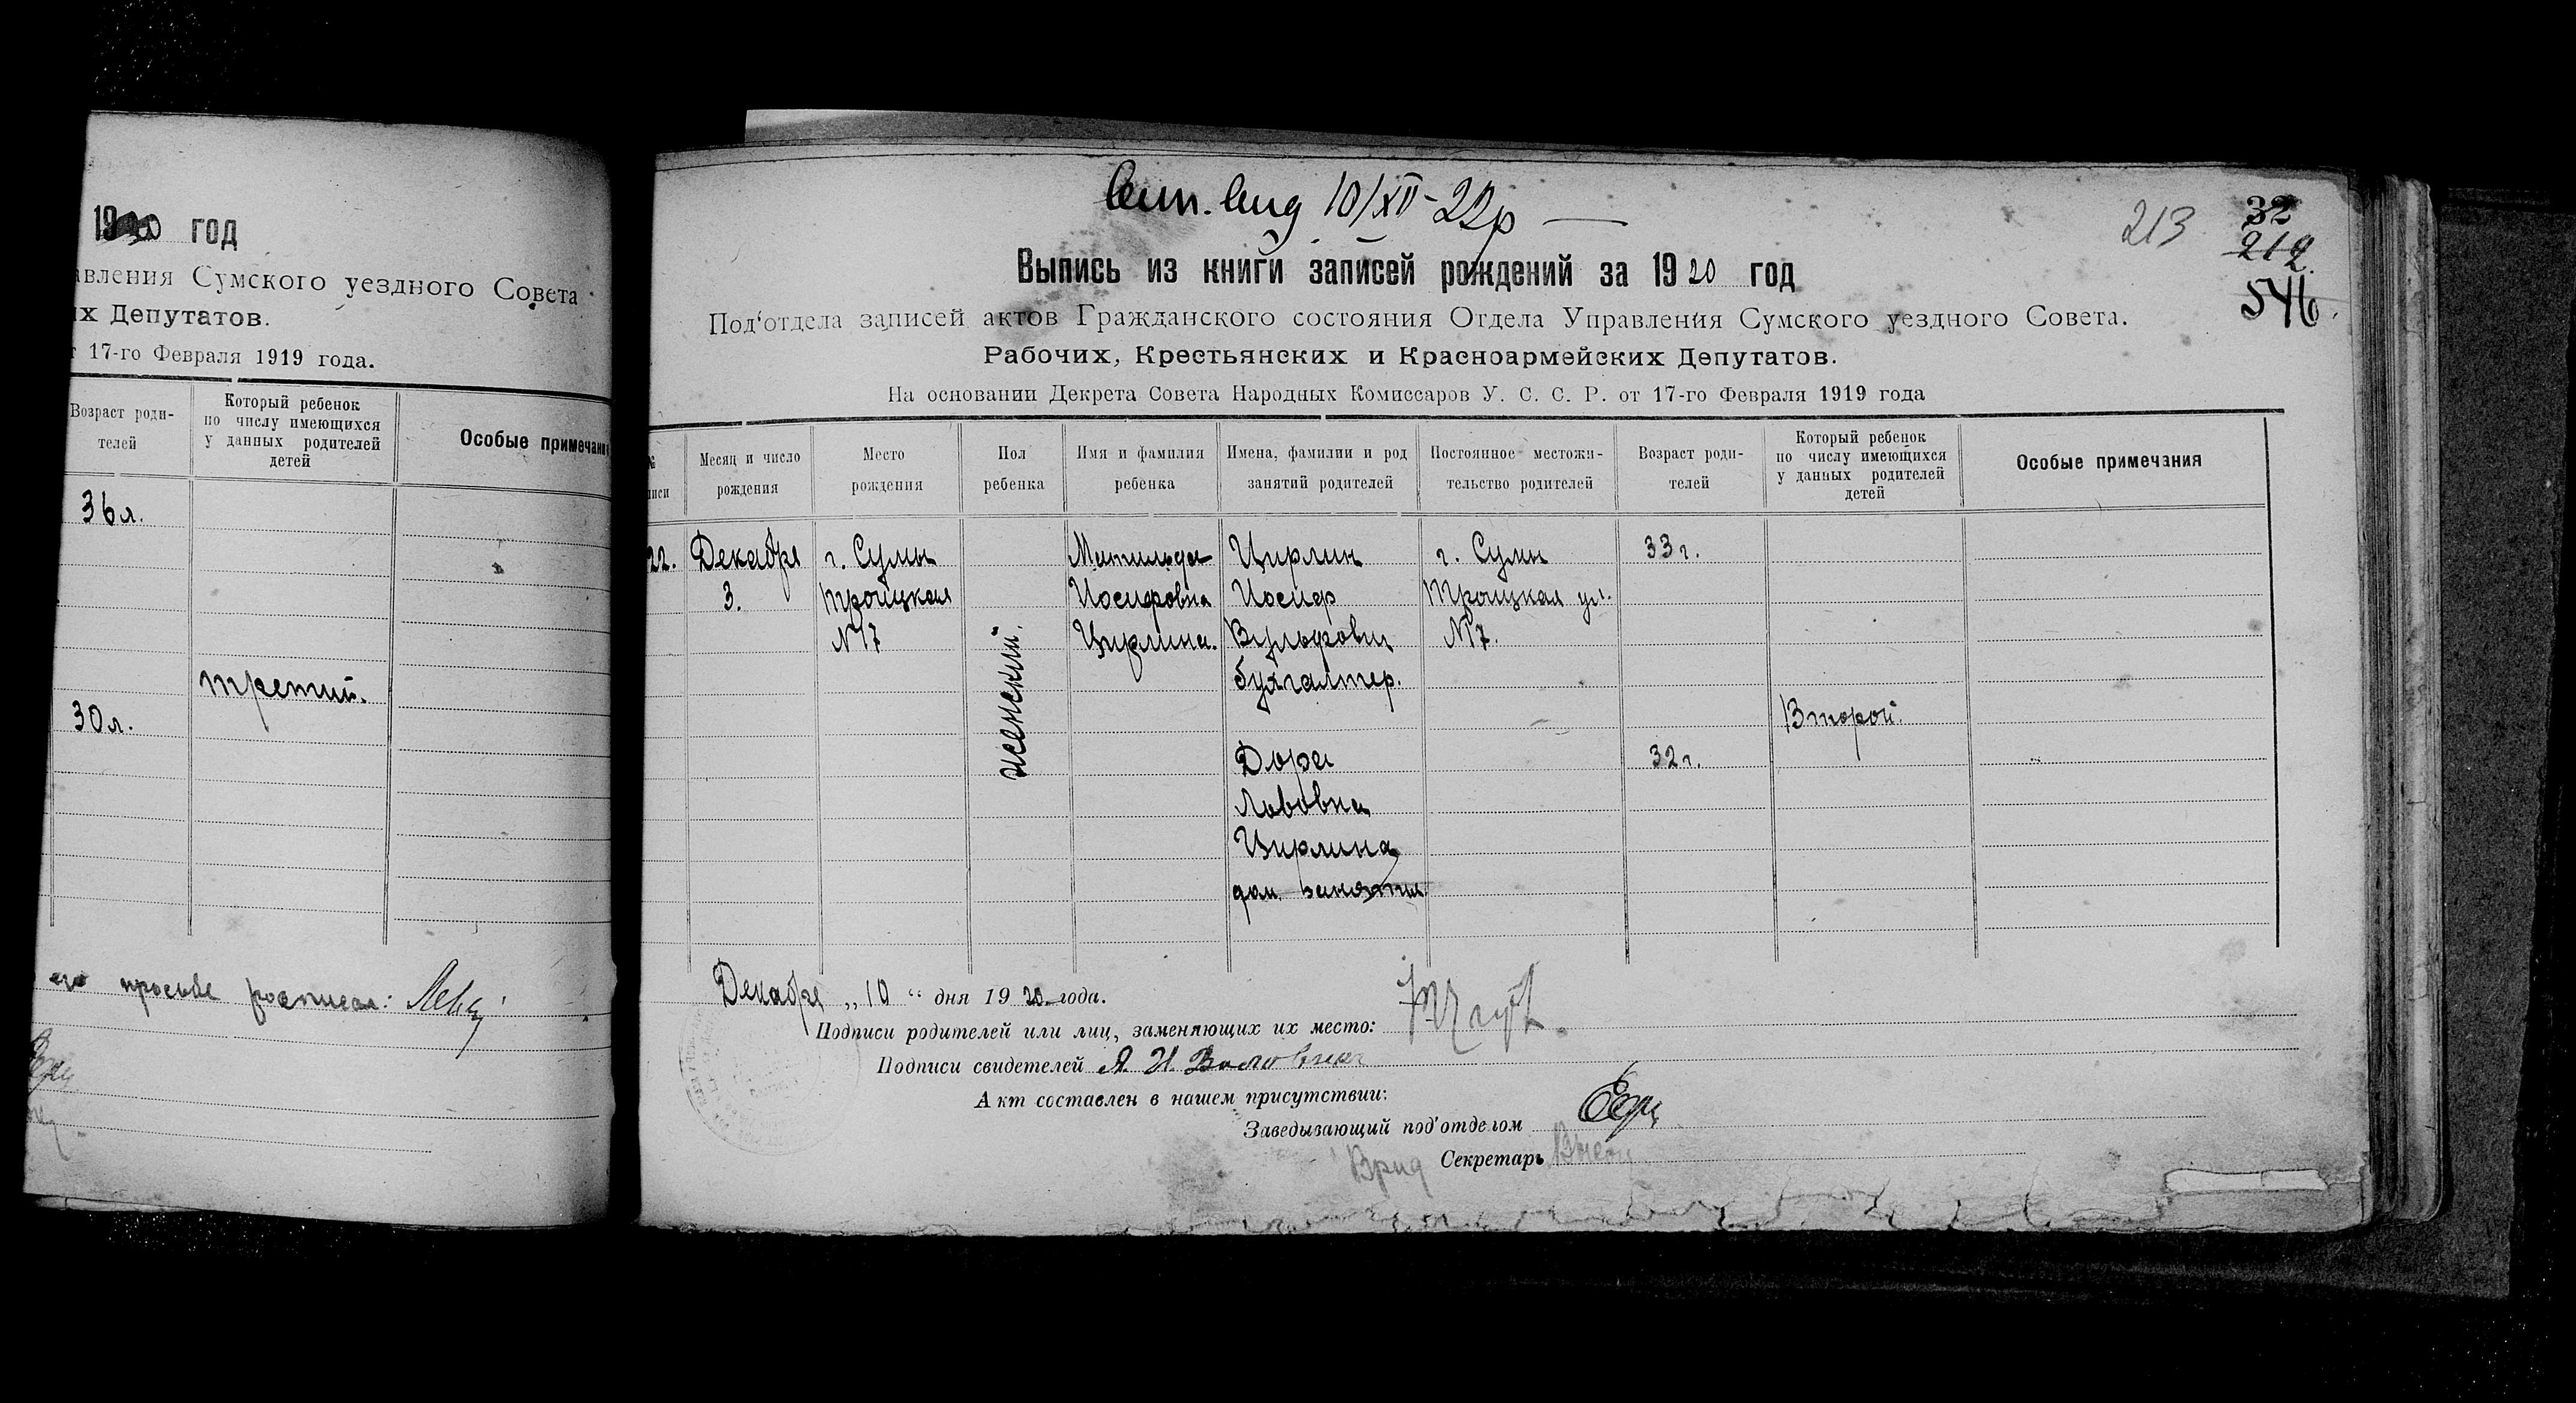 1920 год
авления Сумского уездного Совета
их Депутатов.
т 17-го Февраля 1919 года.
Возраст роди-
телей
Который ребенок
по числу имеющихся
у данных родителей
детей
Особые примечани
36 л.
третий.
30 л.
его просьбе расписал:
213
32
212.
546.
10/XII-22р
Выпись из книги записей рождений за 1920 год
Под‘отдела записей актов Гражданского состояния Отдела Управления Сумского уездного Совета.
Рабочих, Крестьянских и Красноармейских Депутатов.
На основании Декрета Совета Народных Комиссаров У. С. С. Р. от 17-го Февраля 1919 года
№
писи
Месяц и число
рождения
Место
рождения
Пол
ребенка
Имя и фамилия
ребенка
Имена, фамилии и род
занятий родителей
Постоянное местожи-
тельство родителей
Возраст роди-
телей
Который ребенок
по числу имеющихся
у данных родителей
детей
Особые примечания
22.
Декабря
3.
г. Сумы
Троицкая
№ 7
женский.
Матильда
Иосифовна
Цирлина.
Цирлин
Иосиф
Вульфович
бухгалтер.
Дора
Львовна
Цирлина
дом. занятия
г. Сумы
Троицкая ул.
№ 7.
33 г.
32 г.
Второй.
Декабря „10“ дня 1920 года.
Подписи родителей или лиц, заменяющих их место:
Подписи свидетелей А. И.
Акт составлен в нашем присутствии:
Заведывающий под‘отделом
Врид Секретарь